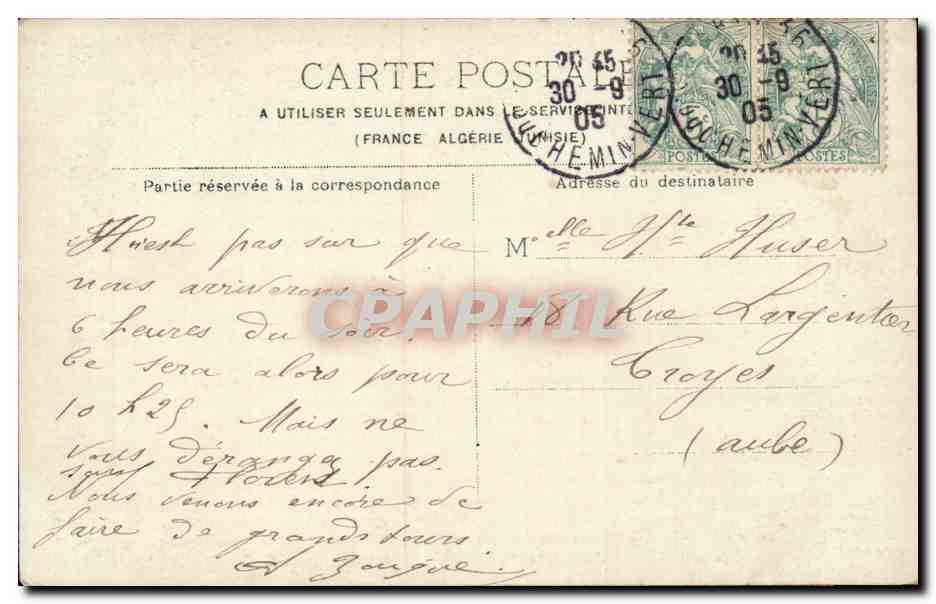 CARTE POSTALE
A UTILISER SEULEMENT DANS LE SERVICE INTÉ
(FRANCE ALGÉRIE TUNISIE)
POSTES
POSTES
30 -9
05
30 -9
05
DU CHEMIN-VERT
DU CHEMIN-VERT
Partie réservée à la correspondance
Adresse du destinataire
N'est pas sur que
nous arriverons à
6 heures du soir.
Ce sera alors pour
10 h 25. Mais ne
vous déranger pas.
Nous venons encore de
faire de grands tours
Melle Huser
18 Rue Largentier
Troyes
(aube)
CPAPHIL